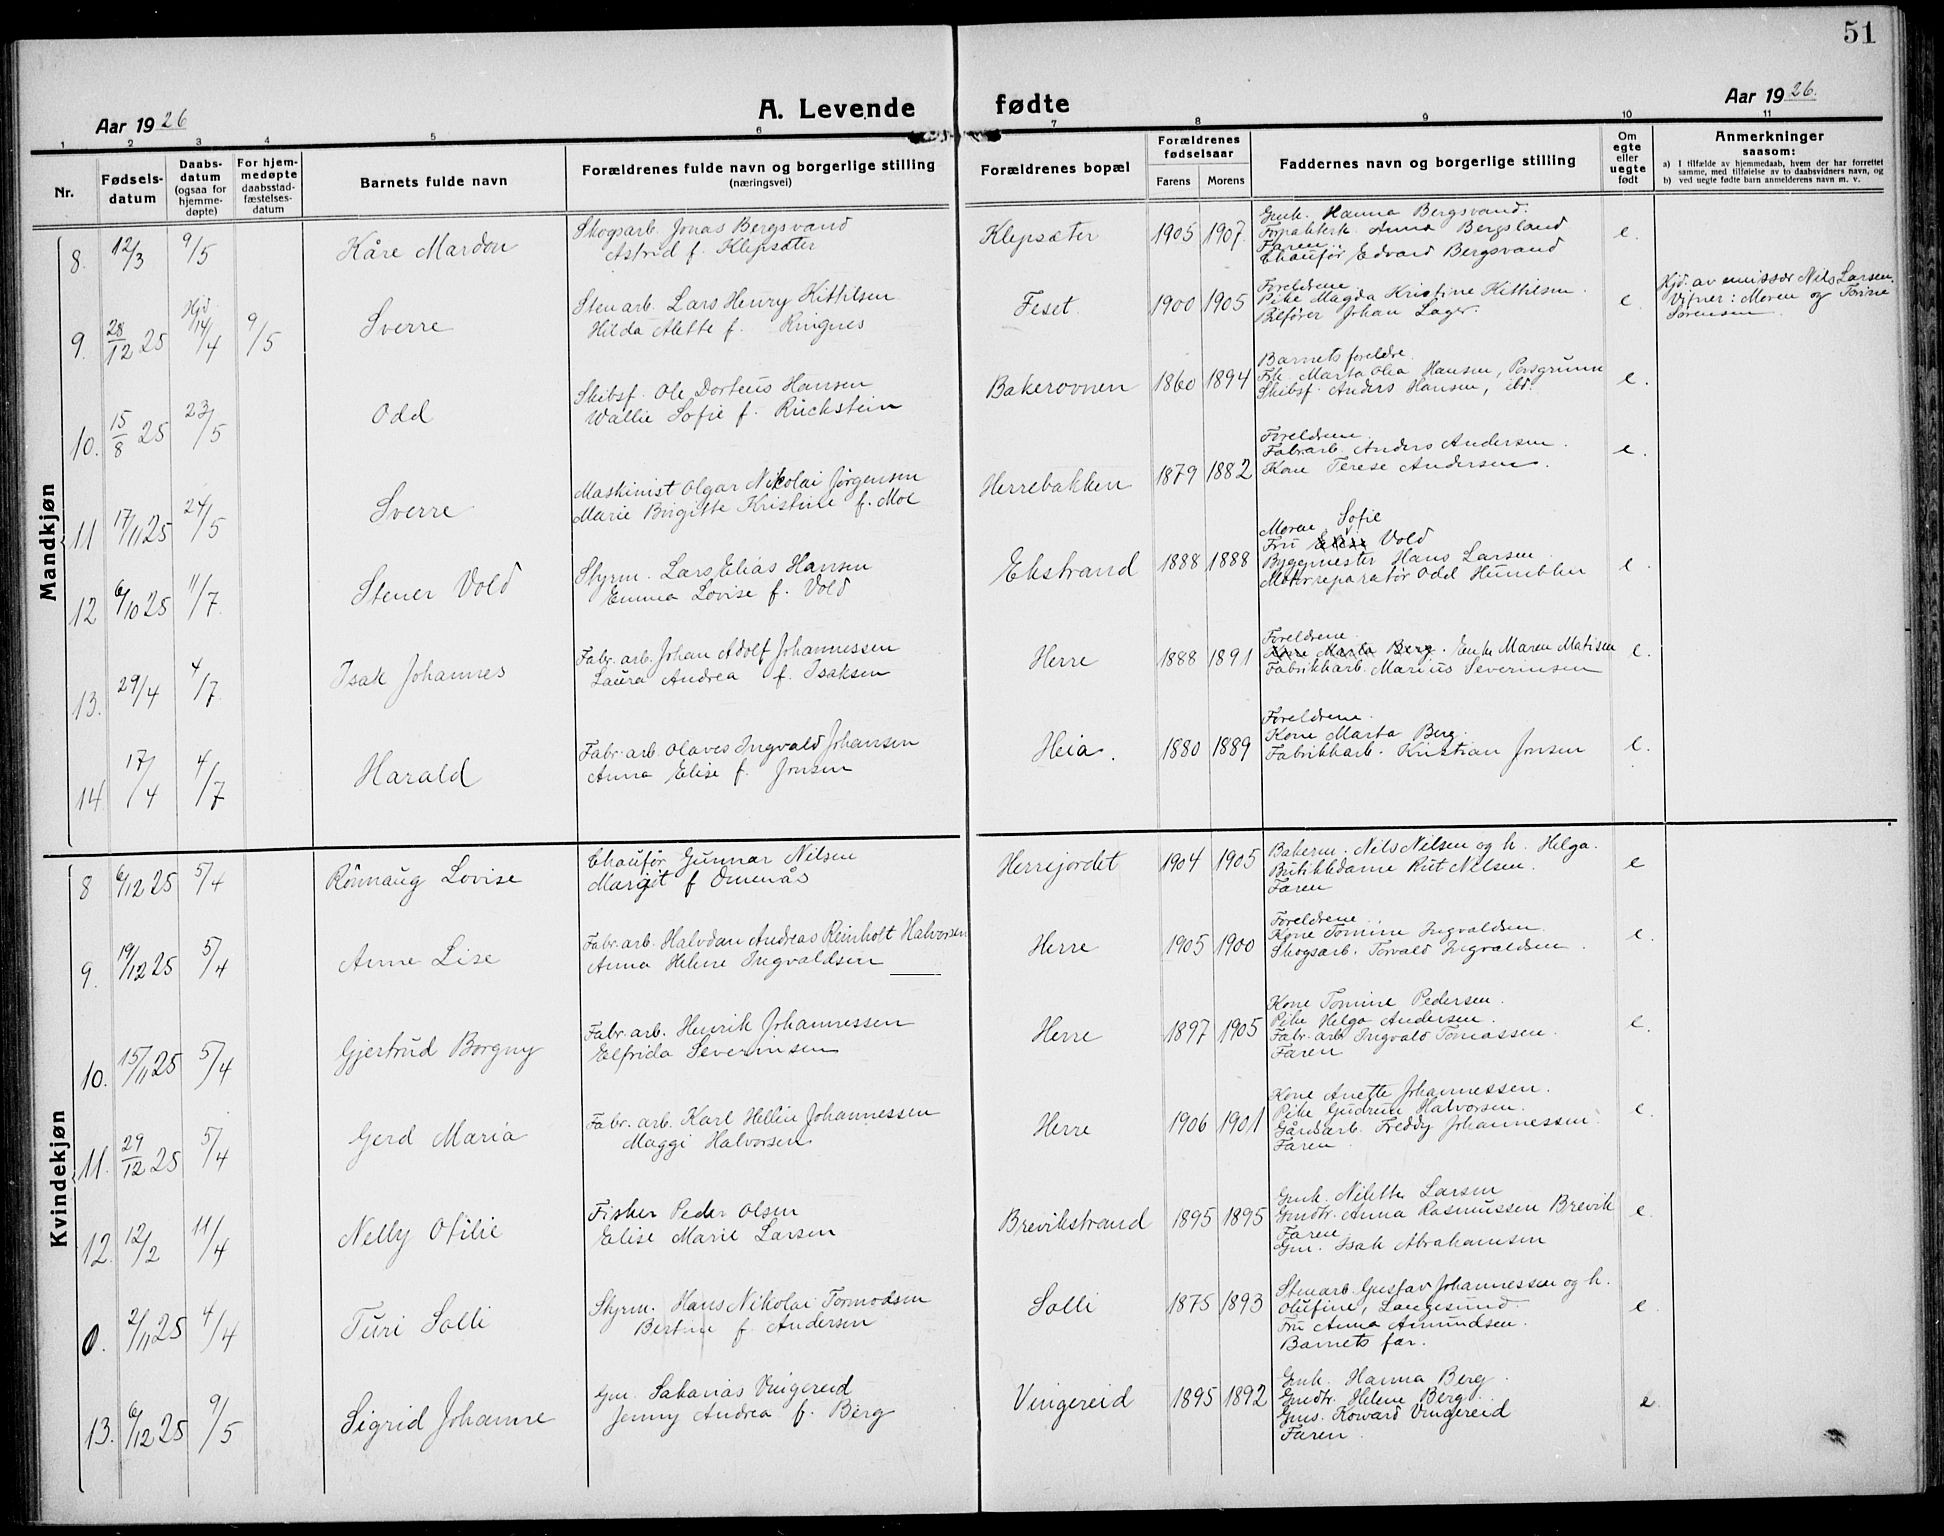 51
Aar 1926
A. Levende
fødte
Aar 1926.
1 2 3 4 5 6 7 8 9 10 11
Nr.
Fødselsdatum
Daabsdatum (ogsaa for hjemmedøpte)
For hjemmedøpte daabsstadfæstelsesdatum
Barnets fulde navn
Forældrenes fulde navn og borgerlige stilling (næringsvei)
Forældrenes bopæl
Forældrenes fødselsaar
Farens Morens
Faddernes navn og borgerlige stilling
Om egte eller uegte født
Anmerkninger saasom:
a) I tilfælde av hjemmedaab, hvem der har forrettet samme, med tilføielse av to daabsvidners navn, og
b) ved uegte fødte barn anmelderens navn m. v.
Mandkjøn
8. 12/3 9/5 Kåre Mardon
Skogsarb. Jonas Bergsvand
Astrid f. Klepsæter
Klepsæter 1905 1907.
Gmk. Hanna Bergsvand.
Forpakterk. Anna Bergsland
Faren.
Chaufør Edvard Bergsvand
e.
9. 28/12 25 Hjd. 14/4 9/5 Sverre
Stenarb. Lars Henry Kittilsen
Hilda Alette f. Ringnes
Feset. 1900 1905
Foreldrene
Pike Magda Kristine Kittilsen.
Bilfører Johan Lager.
e.
Hjd. av emissær Nils Larsen.
Vitner: Moren og Torine
Sørensen.
10. 15/8 25 23/5 Odd
Skibsf. Ole Dorteus Hansen
Wallie Sofie f. Ruckstein
Bakerovnen 1860 1894
Barnets foreldre
Frk Marta Olea Hansen, Porsgrunn
Skibsf. Anders Hansen, ibd.
e.
11 17/11 25 24/5 Sverre
Maskinist Olgar Nikolai Jørgensen
Marie Birgitte Kristine f. Moe
Herrebakken 1879 1882
Foreldrene.
Fabr.arb. Anders Andersen.
Kone Terese Andersen.
e.
12 6/10 25 11/7. Stener Vold
Styrm. Lars Elias Hansen
Emma Lovise f. Vold
Ekstrand 1888 1888
Moren. Sofie
Fru Vold
Byggmester Hans Larsen
Motorreparatør Odd Humblen
e.
13. 29/4 4/7. Isak Johannes
Fabr. arb. Johan Adolf Johannessen
Laura Andrea f. Isaksen
Herre 1888 1891
Foreldrene.
Kone Marta Berg. Enke Maren Matisen
Fabrikkarb. Marius Severinsen
e.
14 17/4 4/7 Harald
Fabr. arb Olaves Ingvald Johansen
Anna Elise f. Jonsen
Heia. 1880 1889
Foreldrene.
Kone Marta Berg.
Fabrikkarb. Kristian Jonsen
e.
Kvindekjøn
8 6/12 25 5/4 Rönnaug Lovise
Chaufør Gunnar Nilsen
Margit f Omenås
Herrejordet 1904 1905
Bakerm. Nils Nilsen og h. Helga.
Butikkdame Rut Nilsen.
Faren
e
9. 19/12 25 5/4 Anne Lise
Fabr. arb. Halvdan Andreas Reinholt Halvorsen
Anna Helene Ingvaldsen
Herre 1905 1900
Foreldrene
Kone Tomine Ingvaldsen.
Skogsarb. Torvald Ingvaldsen.
e.
10. 15/11 25 5/4 Gjertrud Borgny
Fabr. arb. Henrik Johannessen
Elfrida Severinsen
Herre 1897 1905
Kone Tomine Pedersen.
Pike Helga Andersen.
Fabr. arb Ingvald Tomassen.
Faren
e.
11. 29/12 25 5/4 Gerd Maria
Fabr. arb. Karl Hellin Johannessen
Maggi Halvorsen
Herre 1906 1901
Kone Anette Johannessen.
Pike Gudrun Halvorsen.
Gårdsarb. Freddy Johannessen.
Faren
e.
12. 12/2 11/4 Nelly Otilie
Fisker Peder Olsen
Elise Marie Larsen
Brevikstrand 1895 1895
Gmk. Nilette Larsen
Gmdtr. Anna Rasmussen Brevik
Faren
Gm. Isak Abrahamsen
e.
0. 2/11 25 4/4 Turi Solli
Styrm. Hans Nikolai Tormodsen
Bertine f. Andersen
Solli 1875 1893
Stenarb. Gustav Johannessen og h.
Olufine, Langesund.
Fru Anna Amundsen.
Barnets far.
e
13. 6/12 25 9/5 Sigrid Johanne
Gm. Sakarias Vingereid
Jenny Andrea f. Berg
Vingereid 1895 1892
Gmk. Hanna Berg.
Gmdtr. Helene Berg.
Gms. Howard Vingereid
Faren.
e.